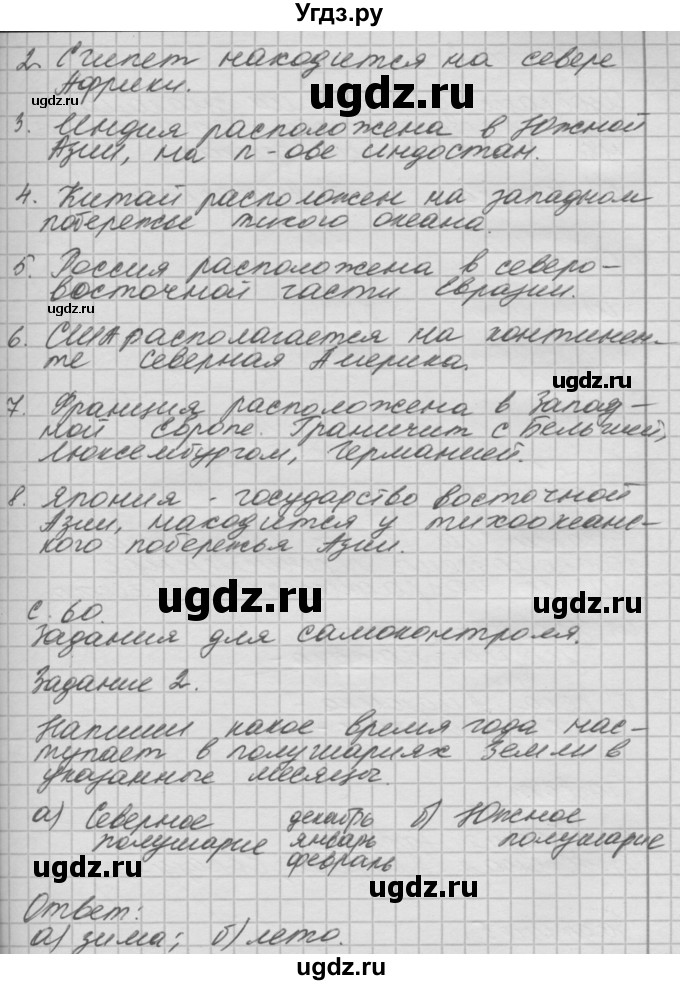 Угдз.ру
2. Египет находится на севере
Африки.
ugdz.ru
ugdz.ru
3. Индия расположена в Южной
Азии, на п-ове индостан.
4. Китай расположен на западном
побережье тихого океана.
ugdz.ru
5. Россия расположена в северо-
восточной части Евразии.
6. США располагается на континен-
те северная Америка.
ugdz.ru
7. Франция расположена в Запад-
ной Европе. Граничит с Бельгией,
Люксембургом, Германией.
ugdz.ru
8. Япония - государство восточной
Азии, находится у тихоокеанс-
кого побережья Азии.
ugdz.ru
ugdz.ru
с. 60.
Задания для самоконтроля.
Задание 2.
Напиши какое время года нас-
тупает в полушариях Земли в
указанные месяцы.
а) Северное декабрь б) Южное
полушарие январь полушарие
февраль
ugdz.ru
ugdz.ru
Ответ:
а) зима; б) лето.
ugdz.ru